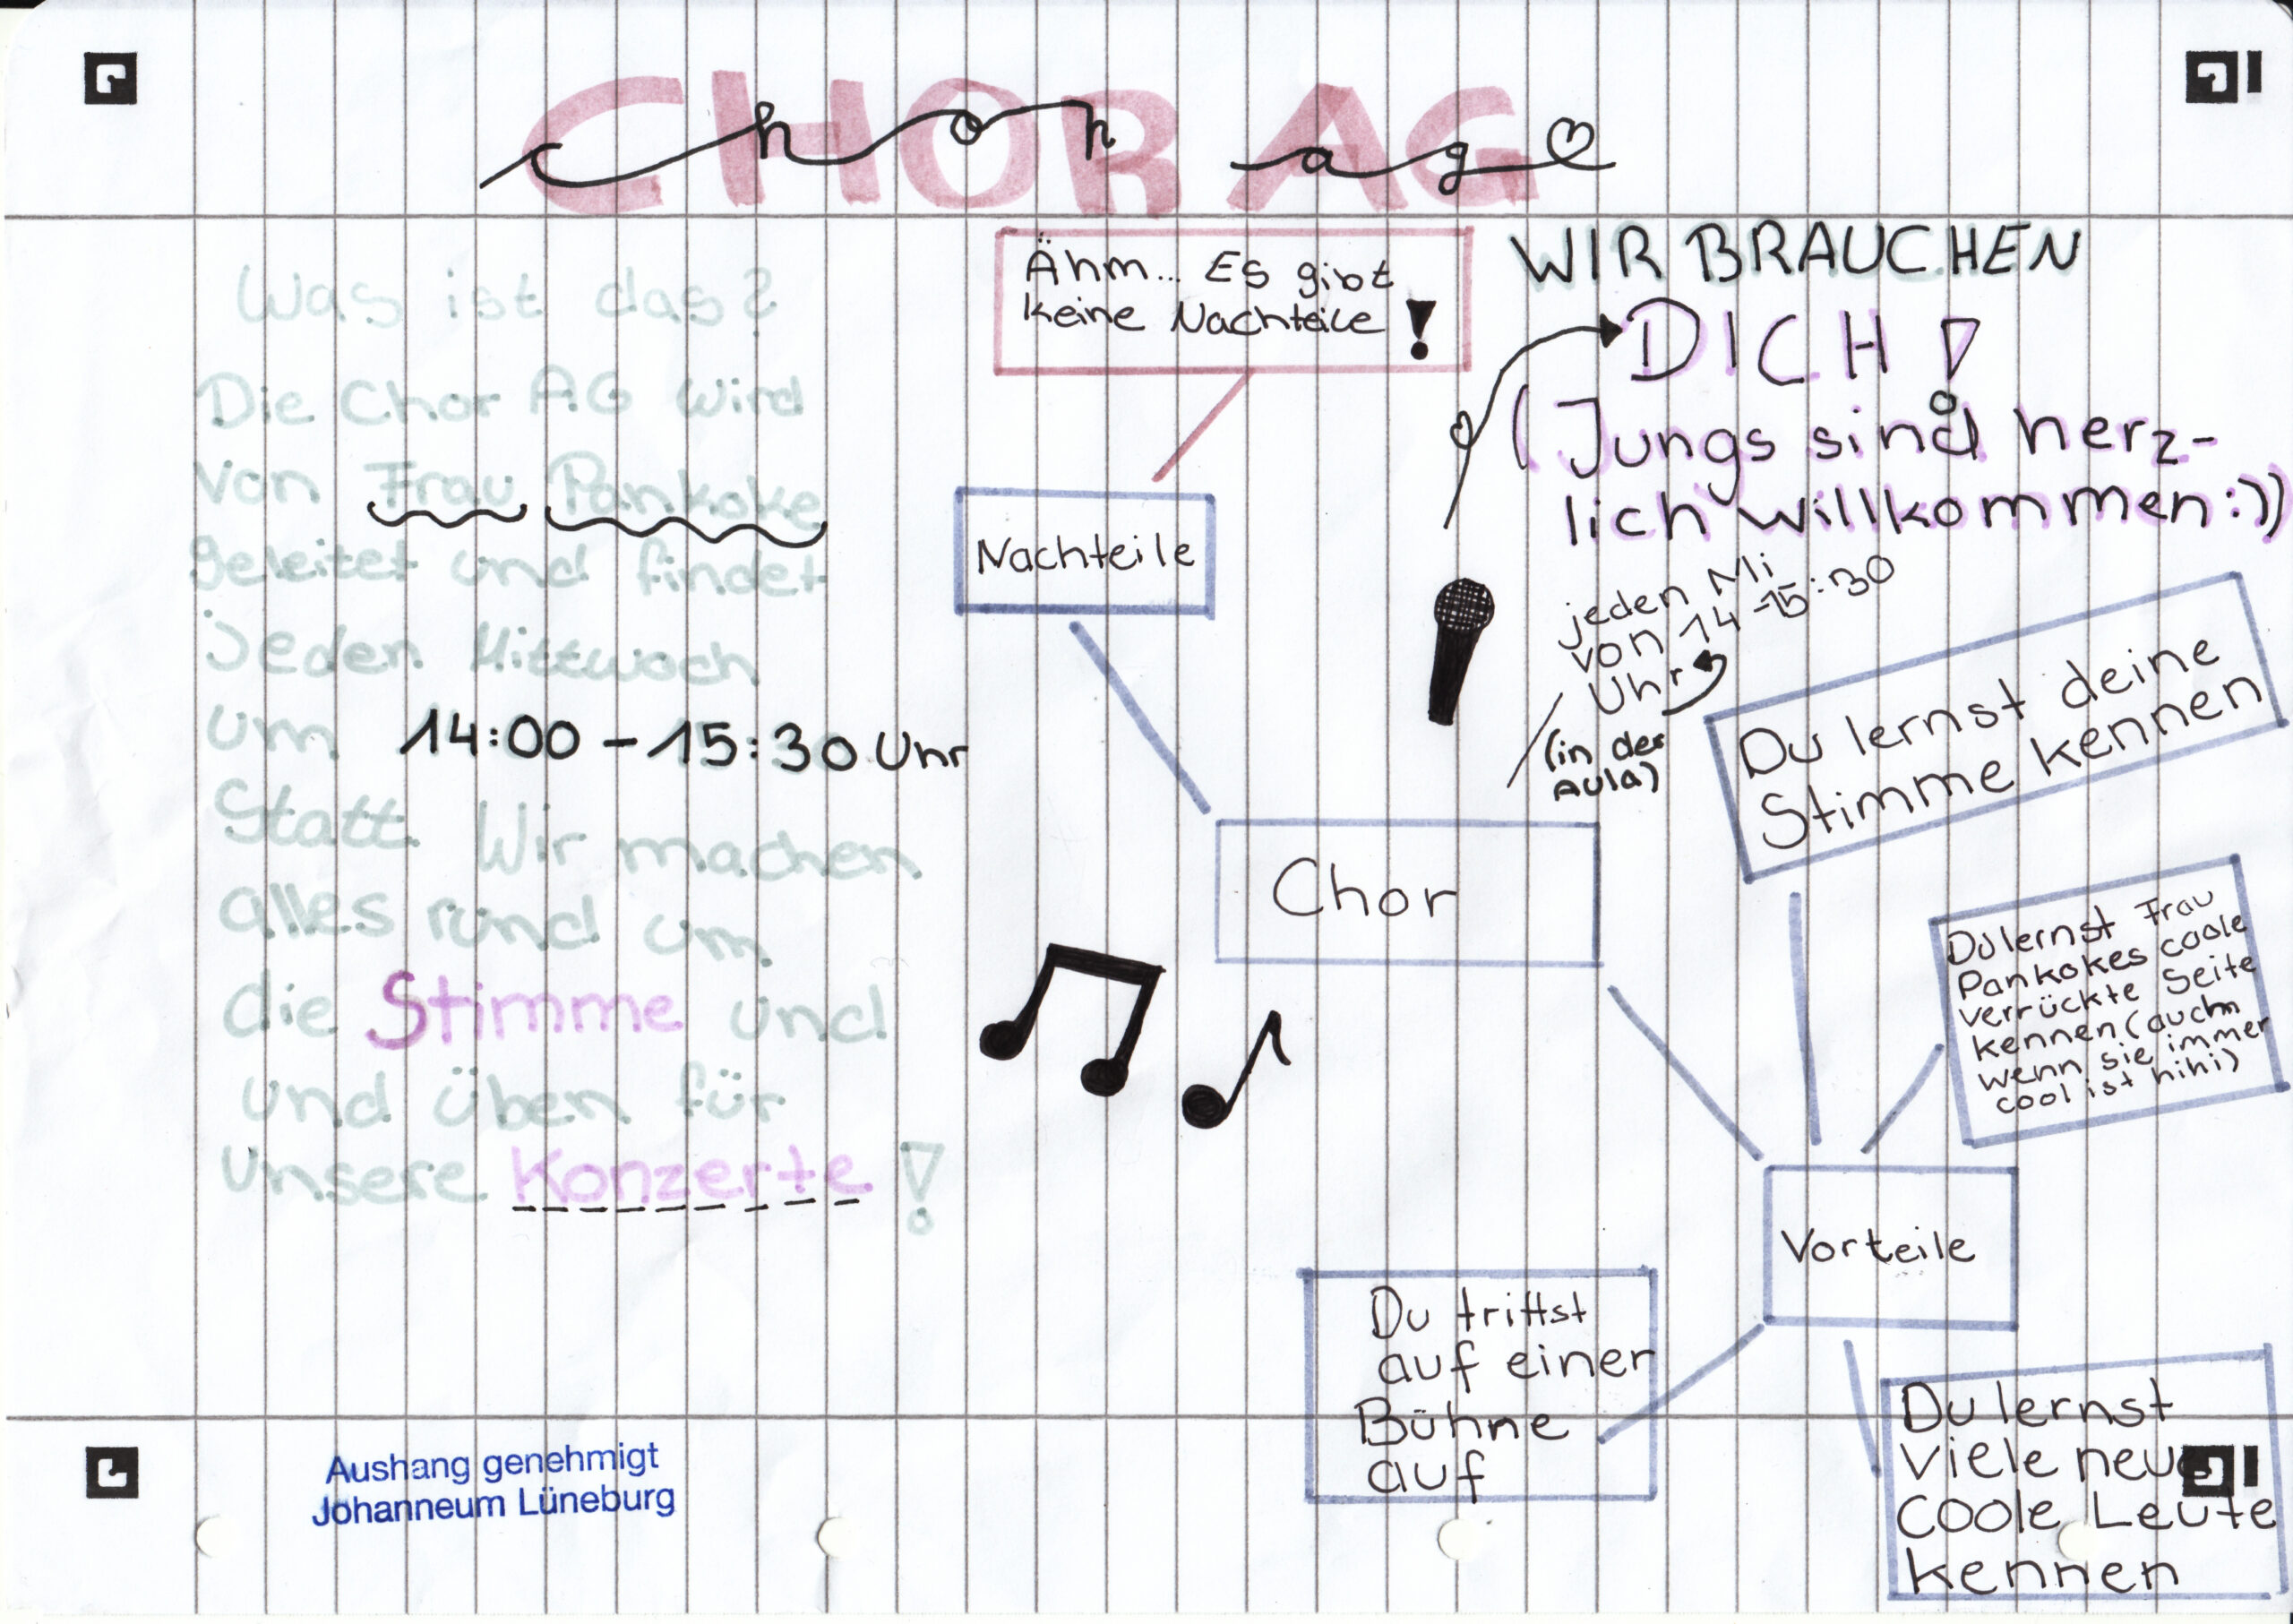 CHOR AG
Chor ag
Was ist das?
Die Chor AG wird
von Frau Pankoke
geleitet und findet
jeden Mittwoch
um 14:00 - 15:30 Uhr
Statt. Wir machen
alles rund um
die Stimme und
und üben für
unsere Konzerte!
Ähm... Es gibt
keine Nachteile!
Nachteile
WIR BRAUCHEN
DICH!
(Jungs sind herz-
lich willkommen:))
jeden Mi
von 14-15:30
Uhr
(in der
Aula)
Chor
Du lernst deine
Stimme kennen
Du lernst Frau
Pankokes coole
verrückte Seite
kennen (auch
wenn sie immer
cool ist hihi)
Vorteile
Du trittst
auf einer
Bühne
auf
Du lernst
viele neue
coole Leute
kennen
Aushang genehmigt
Johanneum Lüneburg